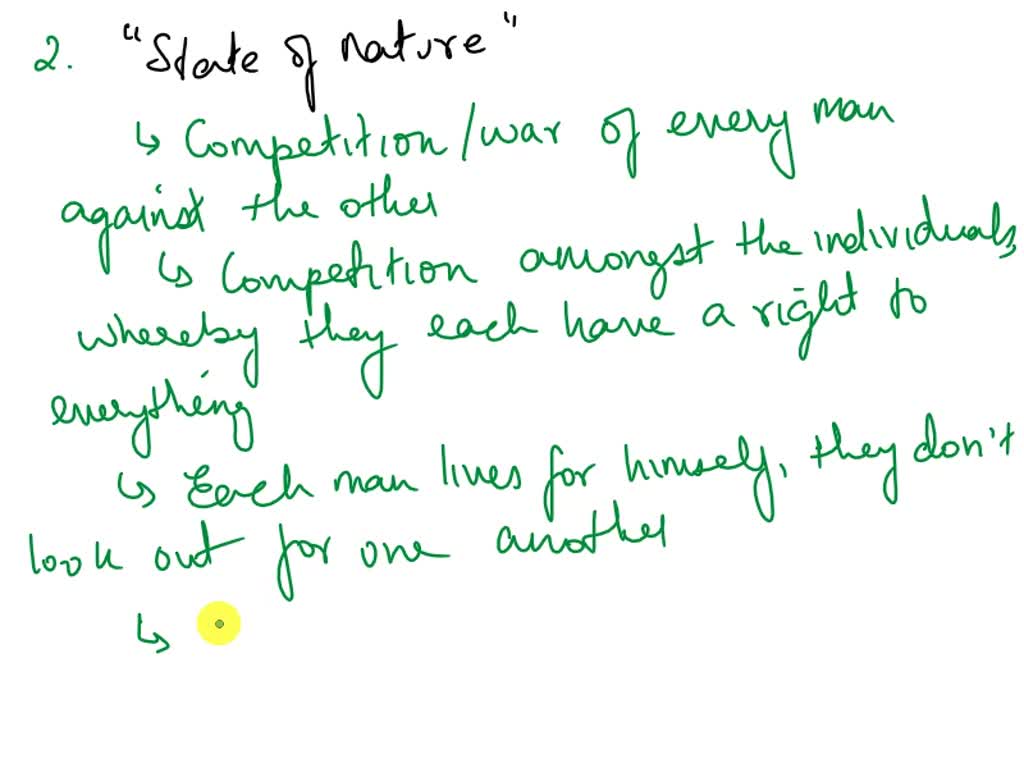 2. "State of nature"
↳ Competition/war of every man
against the other
↳ Competition amongst the individuals,
whereby they each have a right to
everything
↳ Each man lives for himself, they don't
look out for one another
↳